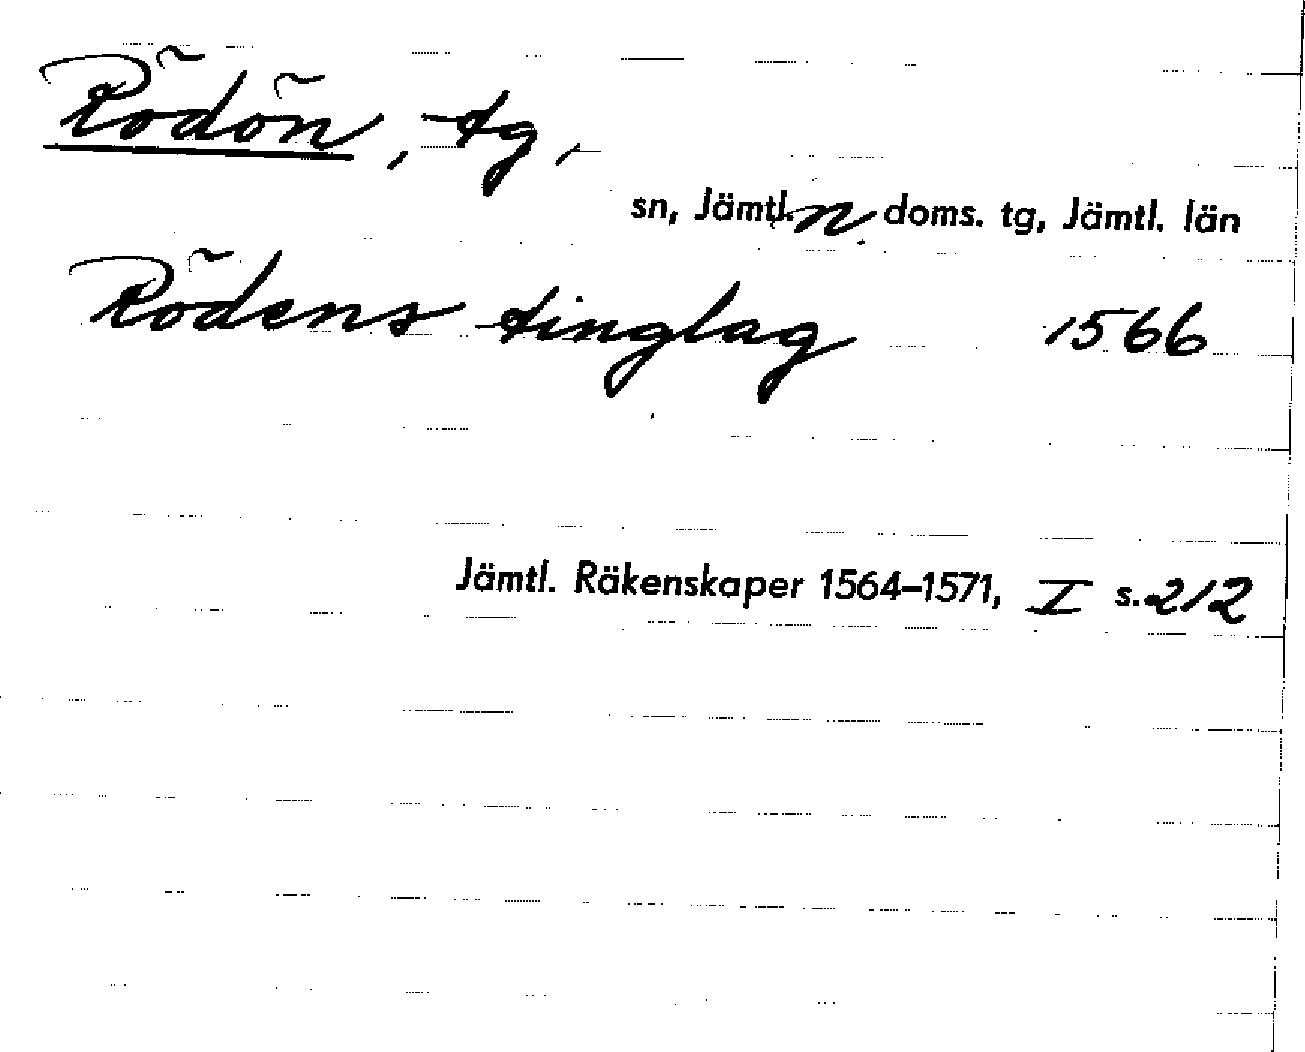 Rödön, tg,
sn, Jämtl. n. doms. tg, Jämtl. län
Rödens tinglag 1566
Jämtl. Räkenskaper 1564–1571, I s. 212